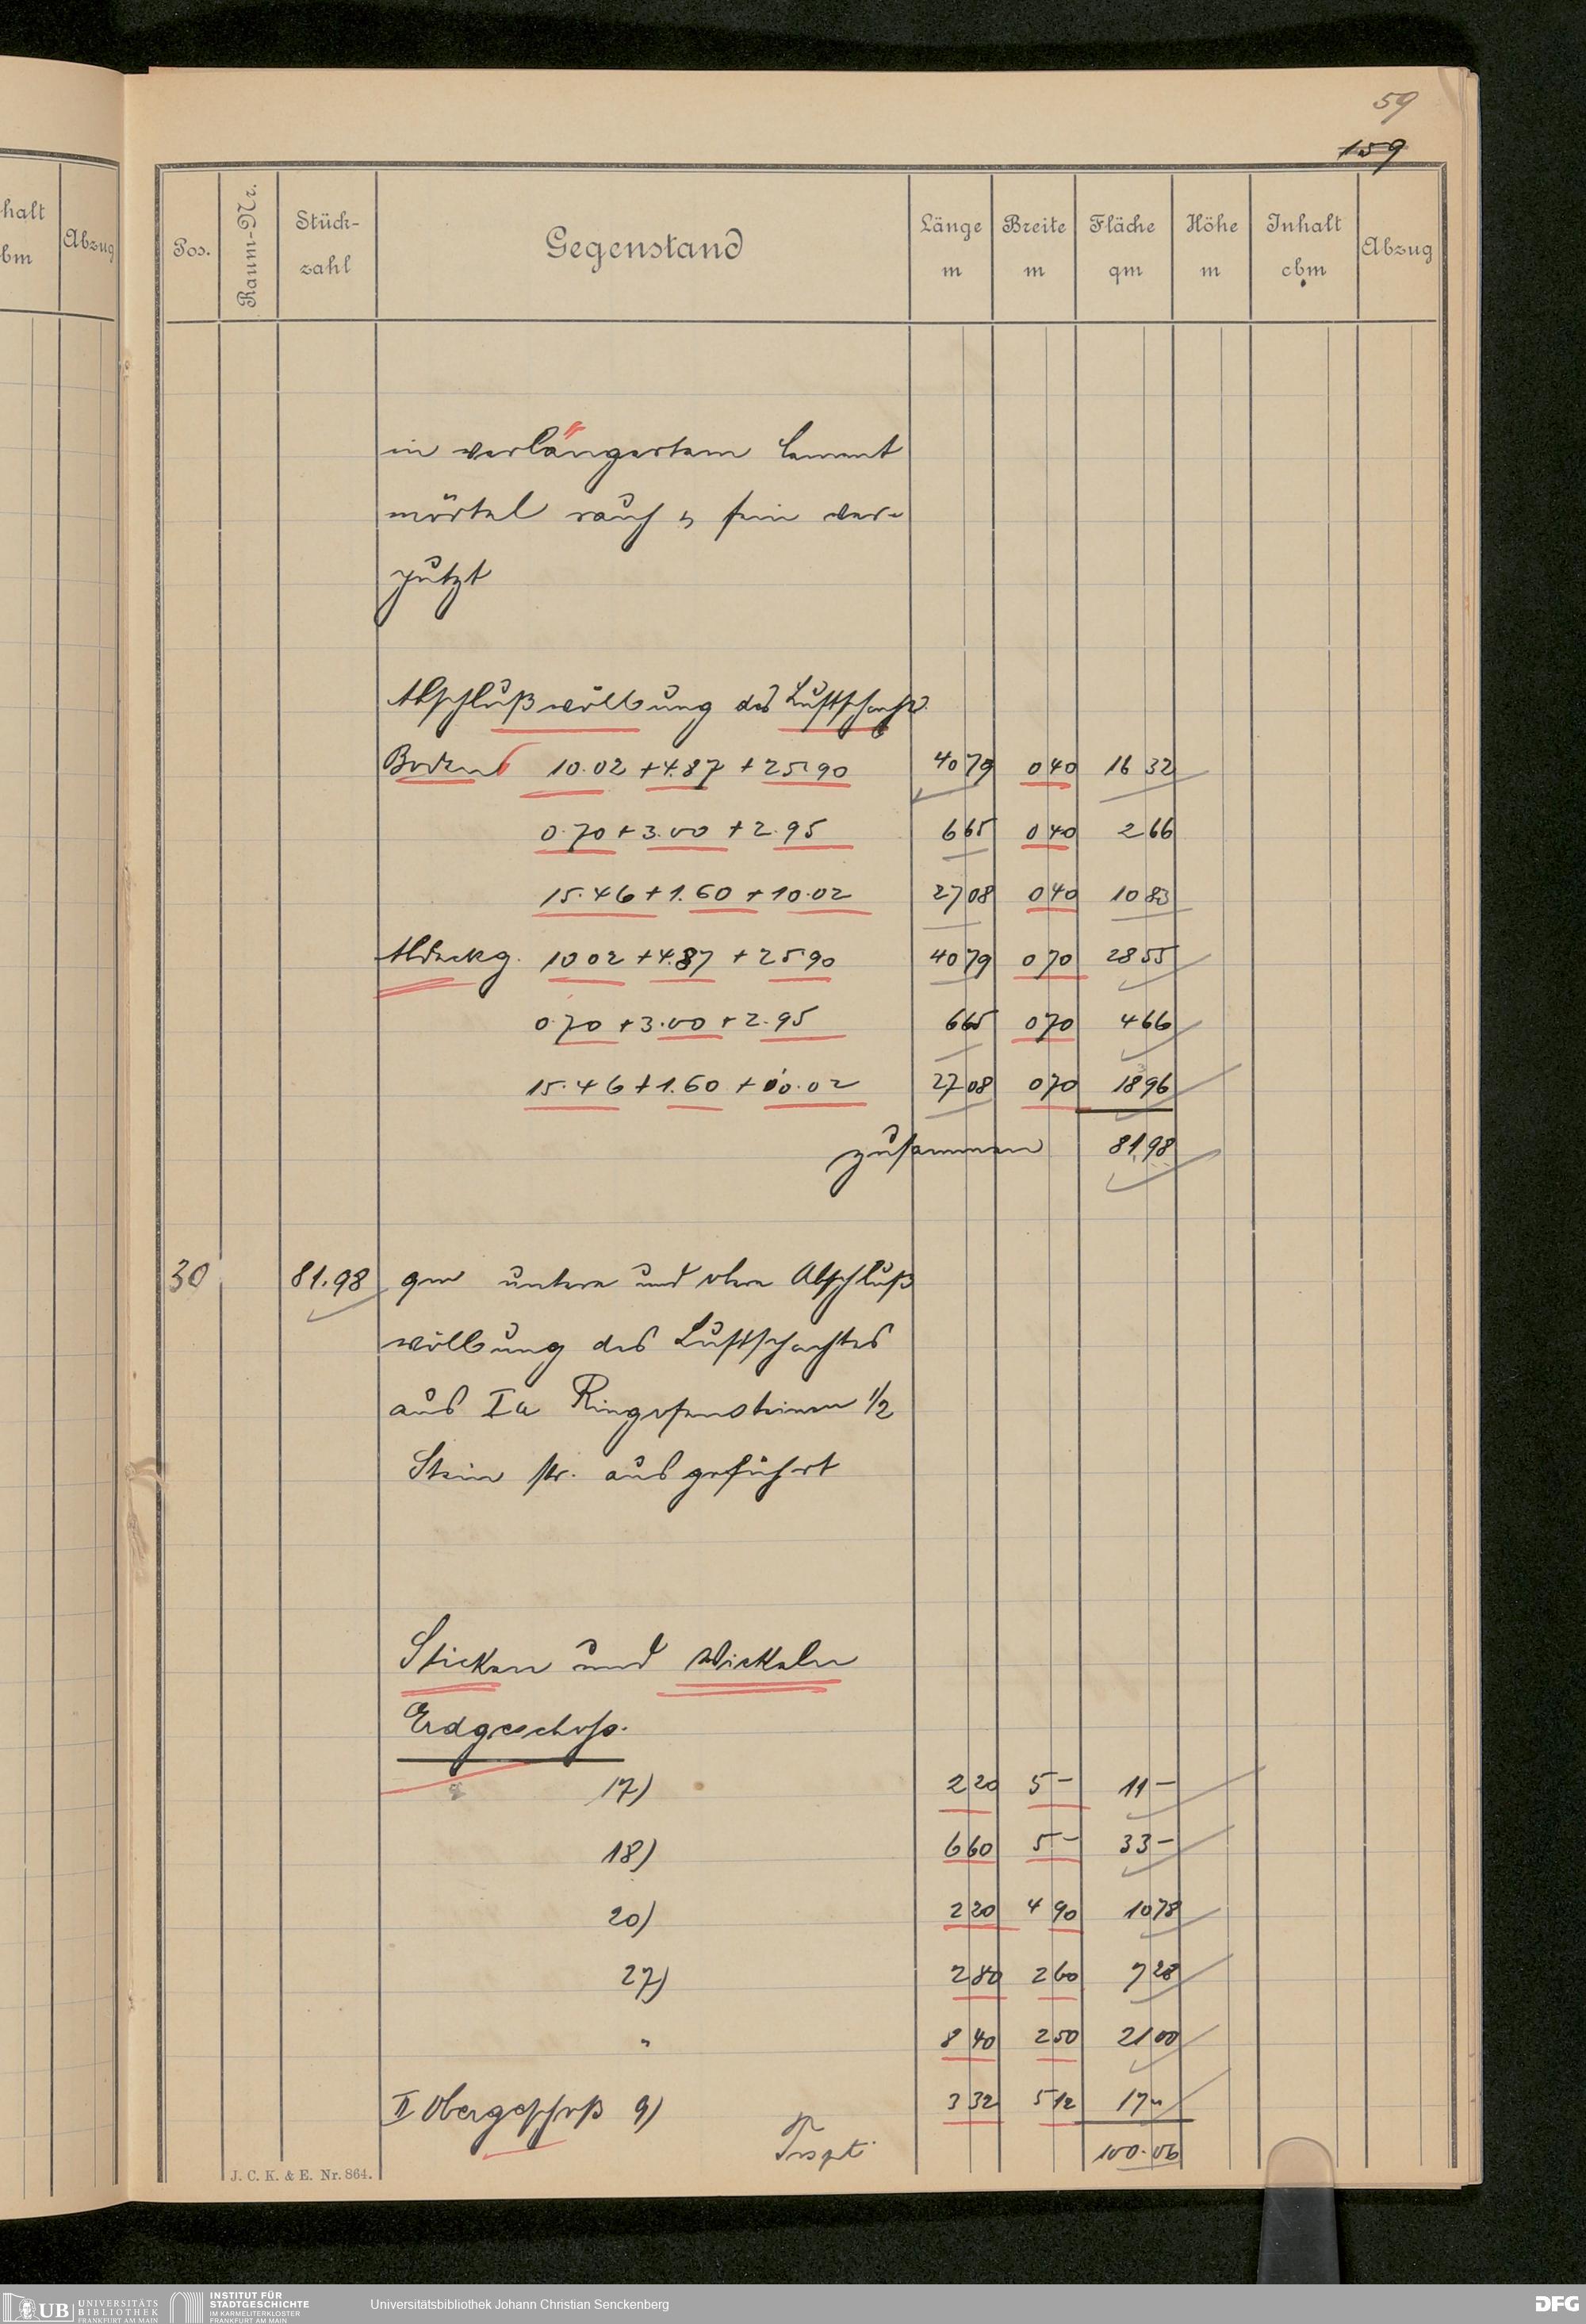 59
159
halt
bm
Abzug
Pos.
Raum-Nr.
Stück-
zahl
Gegenstand
Länge
m
Breite
m
Fläche
qm
Höhe
m
Inhalt
cbm
Abzug
in verlängertem Cement
mörtel rauh u fein ver-
putzt
Abschlußwölbung des Luftschachts.
Boden 10.02 + 4.87 + 25.90 40 79 0 40 16 32
0.70 + 3.00 + 2.95 6 65 0 40 2 66
15.46 + 1.60 + 10.02 27 08 0 40 10 83
Abdeckg. 10 02 + 4.87 + 25 90 40 79 0 70 28 55
0.70 + 3.00 + 2.95 6 65 0 70 4 66
15.46 + 1.60 + 10.02 27 08 0 70 18 96
zusammen 81 98
30 81.98 qm untere und obere Abschluß
wölbung des Luftschachtes
aus Ia Ringofensteinen 1/2
Stein str. ausgeführt
Sticken und Wickeln
Erdgeschoss.
17) 2 20 5 – 11 –
18) 6 60 5 – 33 –
20) 2 20 4 90 10 78
27) 2 80 2 60 7 28
" 8 40 2 50 21 00
II Obergeschoß 9) 3 32 5 12 17 "
Trspt. 100.06
J. C. K. & E. Nr. 864.
UB UNIVERSITÄTS
BIBLIOTHEK
FRANKFURT AM MAIN
INSTITUT FÜR
STADTGESCHICHTE
IM KARMELITERKLOSTER
FRANKFURT AM MAIN
Universitätsbibliothek Johann Christian Senckenberg
DFG